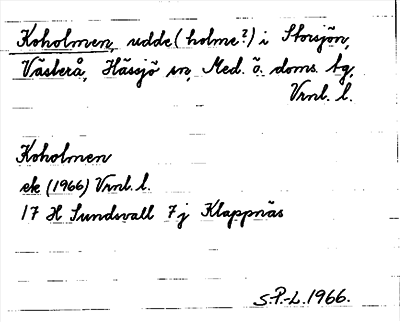 Koholmen, udde (holme?) i Storsjön,
Västerå, Hässjö sn, Med. ö. doms. tg,
Vrnl. l.
Koholmen
ek (1966) Vrnl. l.
17 H Sundsvall 7j Klappnäs
S.P.-L. 1966.